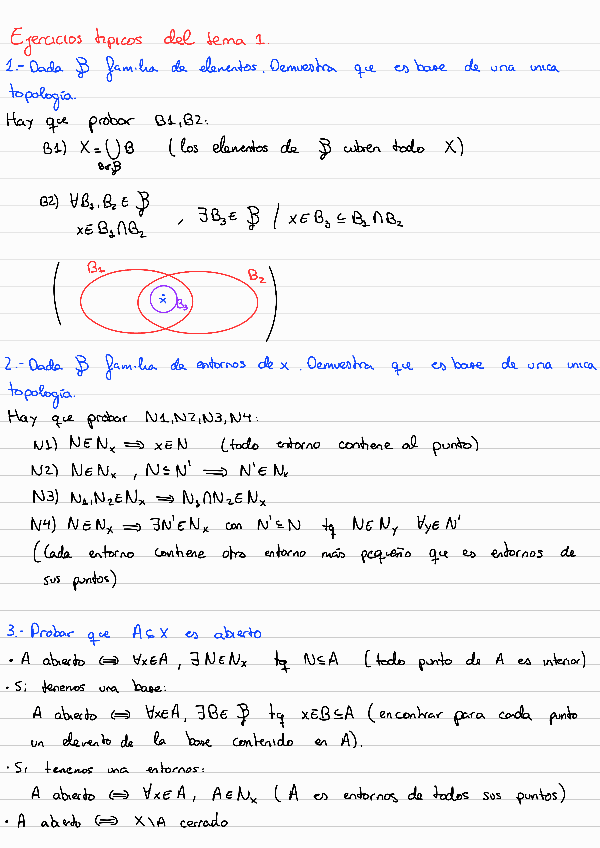 Ejercicios típicos del tema 1.
1.- Dada B familia de elementos. Demuestra que es base de una unica
topología.
Hay que probar B1, B2:
B1) X = ⋃ B (los elementos de B cubren todo X)
B∈B
B2) ∀B₁, B₂ ∈ B
x∈B₁∩B₂ , ∃B₃∈B / x∈B₃⊆B₁∩B₂
B₁ B₂
x B₃
2.- Dada B familia de entornos de x. Demuestra que es base de una unica
topología.
Hay que probar N1, N2, N3, N4:
N1) N∈Nₓ ⟹ x∈N (todo entorno contiene al punto)
N2) N∈Nₓ , N⊆N' ⟹ N'∈Nₓ
N3) N₁, N₂∈Nₓ ⟹ N₁∩N₂∈Nₓ
N4) N∈Nₓ ⟹ ∃N'∈Nₓ con N'⊆N tq N∈N_y ∀y∈N'
(Cada entorno contiene otro entorno más pequeño que es entornos de
sus puntos)
3.- Probar que A⊆X es abierto
• A abierto ⟺ ∀x∈A , ∃N∈Nₓ tq N⊆A (todo punto de A es interior)
• Si tenemos una base:
A abierto ⟺ ∀x∈A, ∃B∈B tq x∈B⊆A (encontrar para cada punto
un elemento de la base contenido en A).
• Si tenemos una entornos:
A abierto ⟺ ∀x∈A, A∈Nₓ (A es entornos de todos sus puntos)
• A abierto ⟺ X\A cerrado